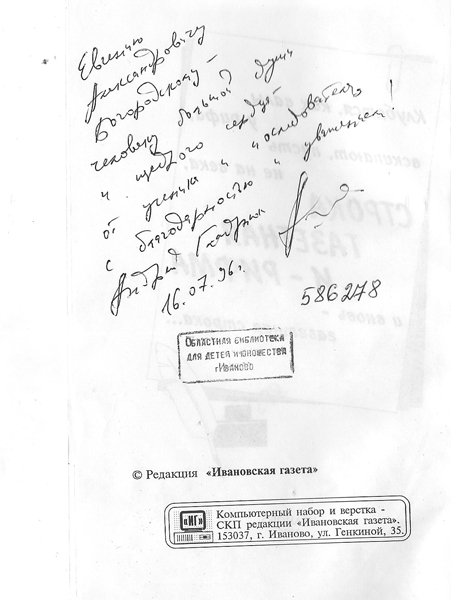 Евгению
Александровичу
Богородскому –
человеку большой души
и щедрого сердца –
от ученика и последователя
с благодарностью и уважением!
Андрей
16.07.96г.
586278
ОБЛАСТНАЯ БИБЛИОТЕКА
ДЛЯ ДЕТЕЙ И ЮНОШЕСТВА
г ИВАНОВО
© Редакция «Ивановская газета»
«ИГ»
Компьютерный набор и верстка -
СКП редакции «Ивановская газета».
153037, г. Иваново, ул. Генкиной, 35.